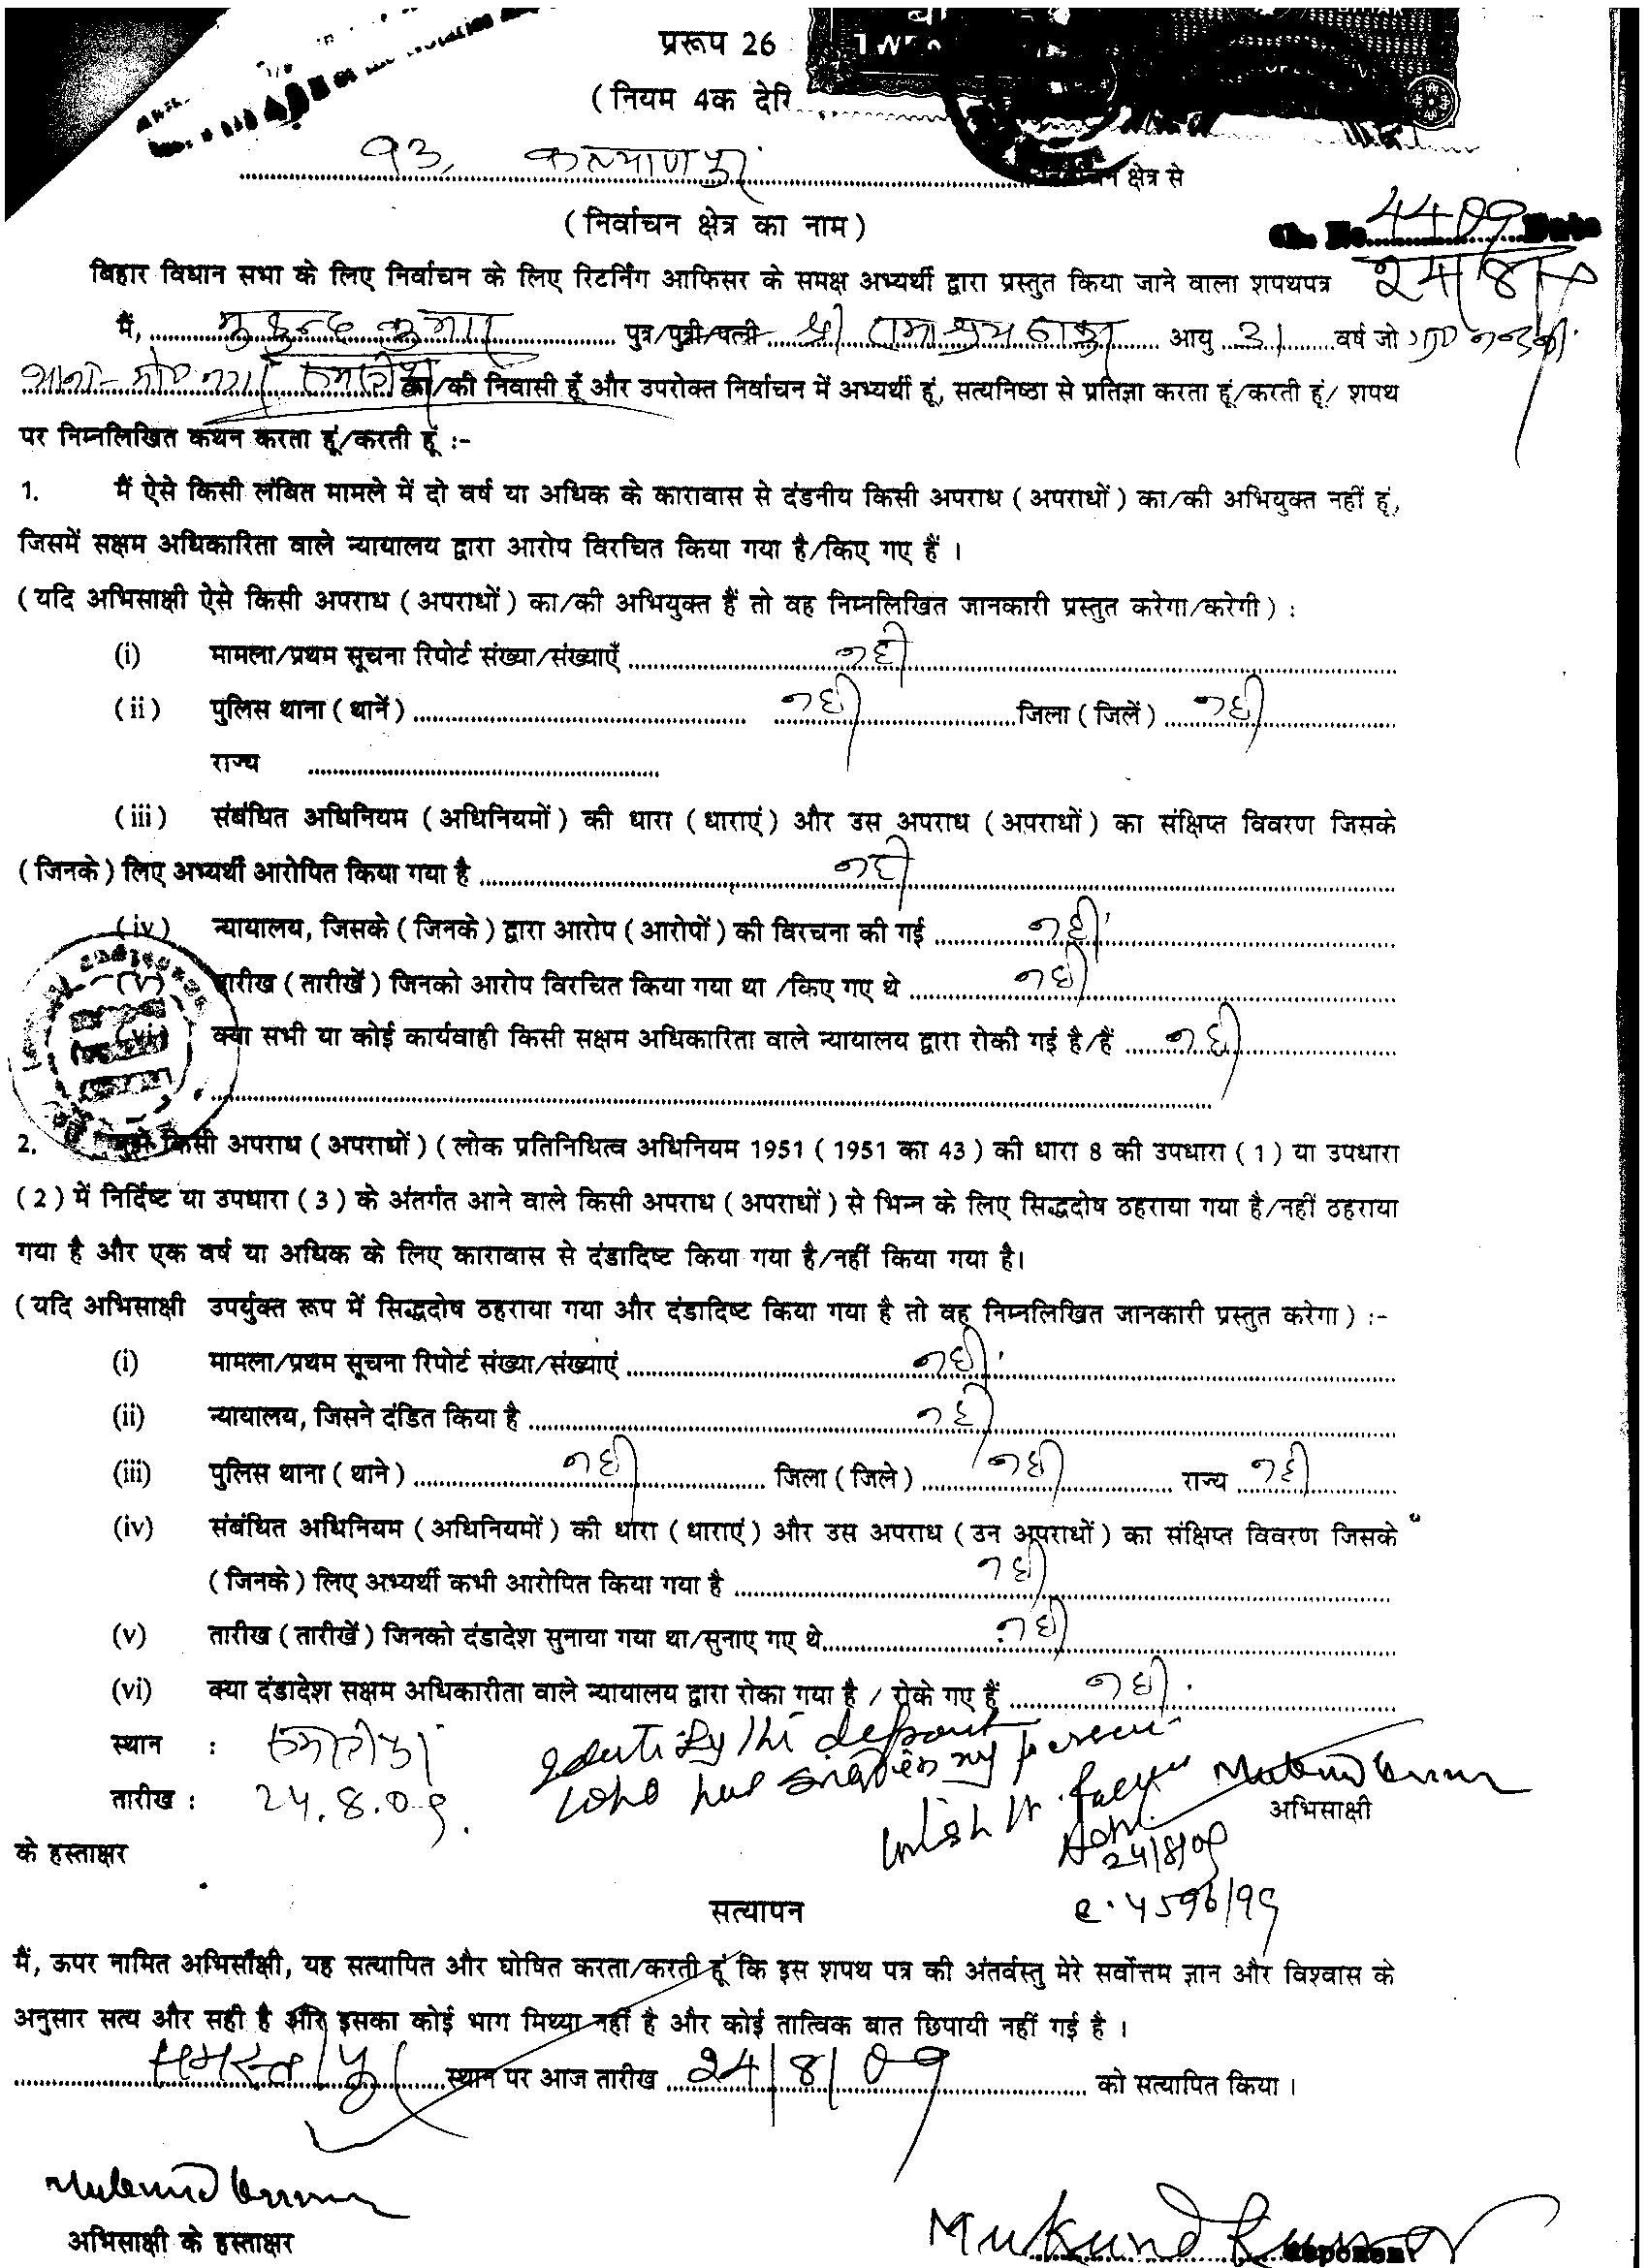 प्ररूप 26
( नियम 4क देखि
93, कल्याणपुर क्षेत्र से
( निर्वाचन क्षेत्र का नाम )
4409
24/8/
बिहार विधान सभा के लिए निर्वाचन के लिए रिटर्निंग आफिसर के समक्ष अभ्यर्थी द्वारा प्रस्तुत किया जाने वाला शपथपत्र
मैं, मुकुन्द कुमार पुत्र/पुत्री/पत्नी श्री रामाश्रय ठाकुर आयु 31 वर्ष जो
थाना- का/की निवासी हूँ और उपरोक्त निर्वाचन में अभ्यर्थी हूं, सत्यनिष्ठा से प्रतिज्ञा करता हूं/करती हूं/ शपथ
पर निम्नलिखित कथन करता हूं/करती हूं :-
1. मैं ऐसे किसी लंबित मामले में दो वर्ष या अधिक के कारावास से दंडनीय किसी अपराध ( अपराधों ) का/की अभियुक्त नहीं हूं,
जिसमें सक्षम अधिकारिता वाले न्यायालय द्वारा आरोप विरचित किया गया है/किए गए हैं ।
( यदि अभिसाक्षी ऐसे किसी अपराध ( अपराधों ) का/की अभियुक्त हैं तो वह निम्नलिखित जानकारी प्रस्तुत करेगा/करेगी ) :
(i) मामला/प्रथम सूचना रिपोर्ट संख्या/संख्याएँ नही
(ii) पुलिस थाना ( थानें ) नही जिला ( जिलें ) नही
राज्य
(iii) संबंधित अधिनियम ( अधिनियमों ) की धारा ( धाराएं ) और उस अपराध ( अपराधों ) का संक्षिप्त विवरण जिसके
( जिनके ) लिए अभ्यर्थी आरोपित किया गया है नही
(iv) न्यायालय, जिसके ( जिनके ) द्वारा आरोप ( आरोपों ) की विरचना की गई नही
(v) तारीख ( तारीखें ) जिनको आरोप विरचित किया गया था /किए गए थे नही
(vi) क्या सभी या कोई कार्यवाही किसी सक्षम अधिकारिता वाले न्यायालय द्वारा रोकी गई है/हैं नही
2. मुझे किसी अपराध ( अपराधों ) ( लोक प्रतिनिधित्व अधिनियम 1951 ( 1951 का 43 ) की धारा 8 की उपधारा ( 1 ) या उपधारा
( 2 ) में निर्दिष्ट या उपधारा ( 3 ) के अंतर्गत आने वाले किसी अपराध ( अपराधों ) से भिन्न के लिए सिद्धदोष ठहराया गया है/नहीं ठहराया
गया है और एक वर्ष या अधिक के लिए कारावास से दंडादिष्ट किया गया है/नहीं किया गया है।
( यदि अभिसाक्षी उपर्युक्त रूप में सिद्धदोष ठहराया गया और दंडादिष्ट किया गया है तो वह निम्नलिखित जानकारी प्रस्तुत करेगा ) :-
(i) मामला/प्रथम सूचना रिपोर्ट संख्या/संख्याएं नही
(ii) न्यायालय, जिसने दंडित किया है नही
(iii) पुलिस थाना ( थाने ) नही जिला ( जिले ) नही राज्य नही
(iv) संबंधित अधिनियम ( अधिनियमों ) की धारा ( धाराएं ) और उस अपराध ( उन अपराधों ) का संक्षिप्त विवरण जिसके
( जिनके ) लिए अभ्यर्थी कभी आरोपित किया गया है नही
(v) तारीख ( तारीखें ) जिनको दंडादेश सुनाया गया था/सुनाए गए थे नही
(vi) क्या दंडादेश सक्षम अधिकारीता वाले न्यायालय द्वारा रोका गया है / रोके गए हैं नही
स्थान : समस्तीपुर Identify the deponent
तारीख : 24.8.09. who has signed in my presence Mukund Kumar
अभिसाक्षी
24/8/09
के हस्ताक्षर
सत्यापन
मैं, ऊपर नामित अभिसाक्षी, यह सत्यापित और घोषित करता/करती हूं कि इस शपथ पत्र की अंतर्वस्तु मेरे सर्वोत्तम ज्ञान और विश्वास के
अनुसार सत्य और सही है और इसका कोई भाग मिथ्या नहीं है और कोई तात्विक बात छिपायी नहीं गई है ।
समस्तीपुर स्थान पर आज तारीख 24/8/09 को सत्यापित किया ।
Mukund Kumar
अभिसाक्षी के हस्ताक्षर
Mukund Kumar
Deponent